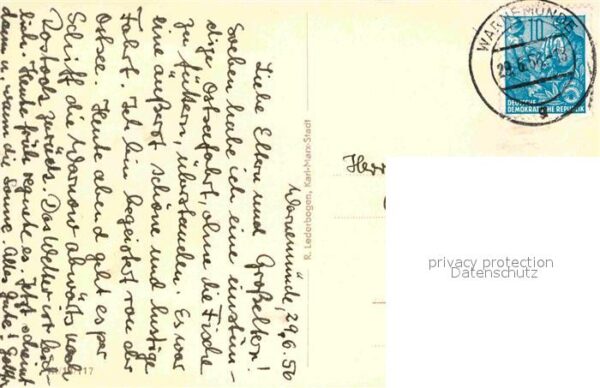 Warnemünde, 29.6.56
Liebe Eltern und Großeltern!
Soeben habe ich eine einstün-
dige Ostseefahrt, ohne die Fische
zu füttern, überstanden. Es war
eine äußerst schöne und lustige
Fahrt. Ich bin begeistert von der
Ostsee. Heute abend geht es per
Schiff die Warnow abwärts nach
Rostock zurück. Das Wetter ist leid-
lich. Heute früh regnete es. Jetzt scheint
dann u. wann die Sonne. Alles Gute!
R. Lederbogen, Karl-Marx-Stadt
Herr
WARNEMÜNDE
29.6.56
10
DEUTSCHE
DEMOKRATISCHE REPUBLIK
privacy protection
Datenschutz